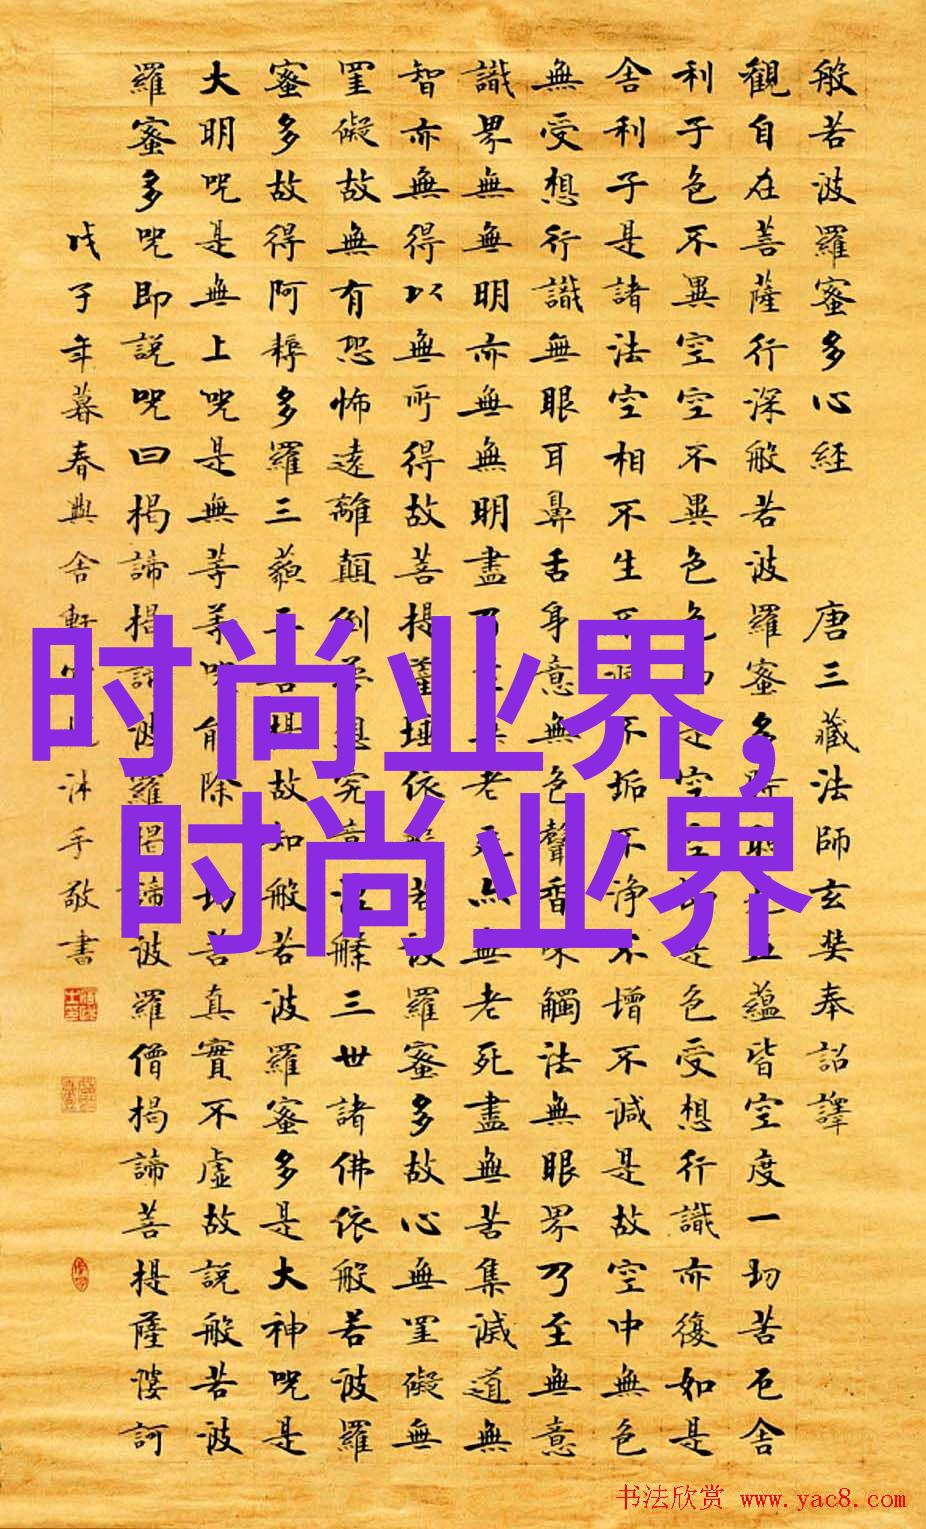 般若波羅蜜多心經 唐三藏法師玄奘奉詔譯
觀自在菩薩行深般若波羅蜜多時照見五蘊皆空度一切苦厄舍
利子色不異空空不異色色即是空空即是色受想行識亦復如是
舍利子是諸法空相不生不滅不垢不淨不增不減是故空中無色
無受想行識無眼耳鼻舌身意無色聲香味觸法無眼界乃至無意
識界無無明亦無無明盡乃至無老死亦無老死盡無苦集滅道無
智亦無得以無所得故菩提薩埵依般若波羅蜜多故心無罣礙無
罣礙故無有恐怖遠離顛倒夢想究竟涅槃三世諸佛依般若波羅
蜜多故得阿耨多羅三藐三菩提故知般若波羅蜜多是大神咒是
大明咒是無上咒是無等等咒能除一切苦真實不虛故說般若波
羅蜜多咒即說咒曰揭諦揭諦波羅揭諦波羅僧揭諦菩提薩婆訶
戊子年暮春興舍軒沐手敬書
时尚业界，
时尚业界
书法欣赏 www.yac8.com